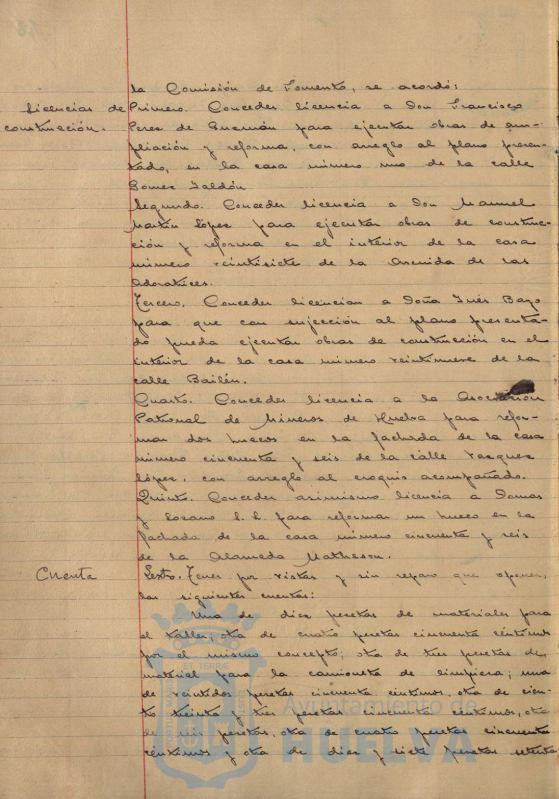 la Comisión de Fomento, se acordó:
Licencias de
construcción.
Primero. Conceder licencia a Don Francisco
Perez de Guzmán para ejecutar obras de am-
pliación y reforma, con arreglo al plano presen-
tado, en la casa número uno de la calle
Gomez Jaldón
Segundo. Conceder licencia a Don Manuel
Martín López para ejecutar obras de construc-
ción y reforma en el interior de la casa
número veintisiete de la Avenida de las
Adoratrices.
Tercero. Conceder licencian a Doña Inés Bayo
para que con sujección al plano presenta-
do pueda ejecutar obras de construcción en el
interior de la casa número veintinueve de la
calle Bailén.
Cuarto. Conceder licencia a la Asociación
Patronal de Mineros de Huelva para refor-
mar dos huecos en la fachada de la casa
número cincuenta y seis de la calle Vazquez
López, con arreglo al croquis acompañado.
Quinto. Conceder asimismo licencia a Tomas
y Lozano S. L. para reformar un hueco en la
fachada de la casa número cincuenta y seis
de la Alameda Matheson.
Cuenta
Sexto. Tener por vistas y sin reparo que oponer,
las siguientes cuentas:
Una de diez pesetas de materiales para
el taller; otra de cuatro pesetas cincuenta céntimos
por el mismo concepto; otra de tres pesetas de
material para la camioneta de limpieza; una
de veintidos pesetas cincuenta céntimos, otra de cien-
to treinta y tres pesetas cincuenta céntimos, otra
de seis pesetas, otra de cuatro pesetas cincuenta
céntimos y otra de diez y siete pesetas setenta
Ayuntamiento de
HUELVA